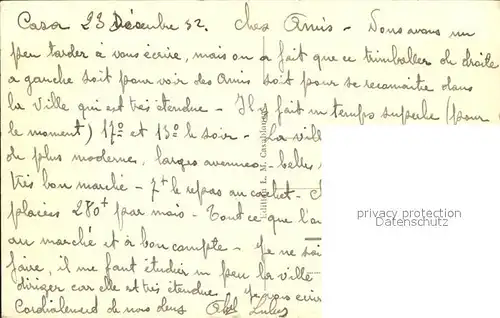 Casa 23 Décembre 32. Chers Amis - Nous avons un
peu tarder à vous écrire, mais on a fait que ce trimballer de droite
a gauche soit pour voir des Amis soit pour se reconnaitre dans
la ville qui est très étendue - Il y fait un temps superbe (pour
le moment) 17° et 13° le soir - La vill
de plus modernes, larges avenues - belles
très bon marché - 7 le repas au cachet -
places 280 par mois - Tout ce que l'on
au marché et à bon compte - Je ne sai
faire, il me faut étudier un peu la ville
diriger car elle est très étendue Je vous écrir
Cordialement de nous deux
Edition L. M. Casablanca
privacy protection
Datenschutz